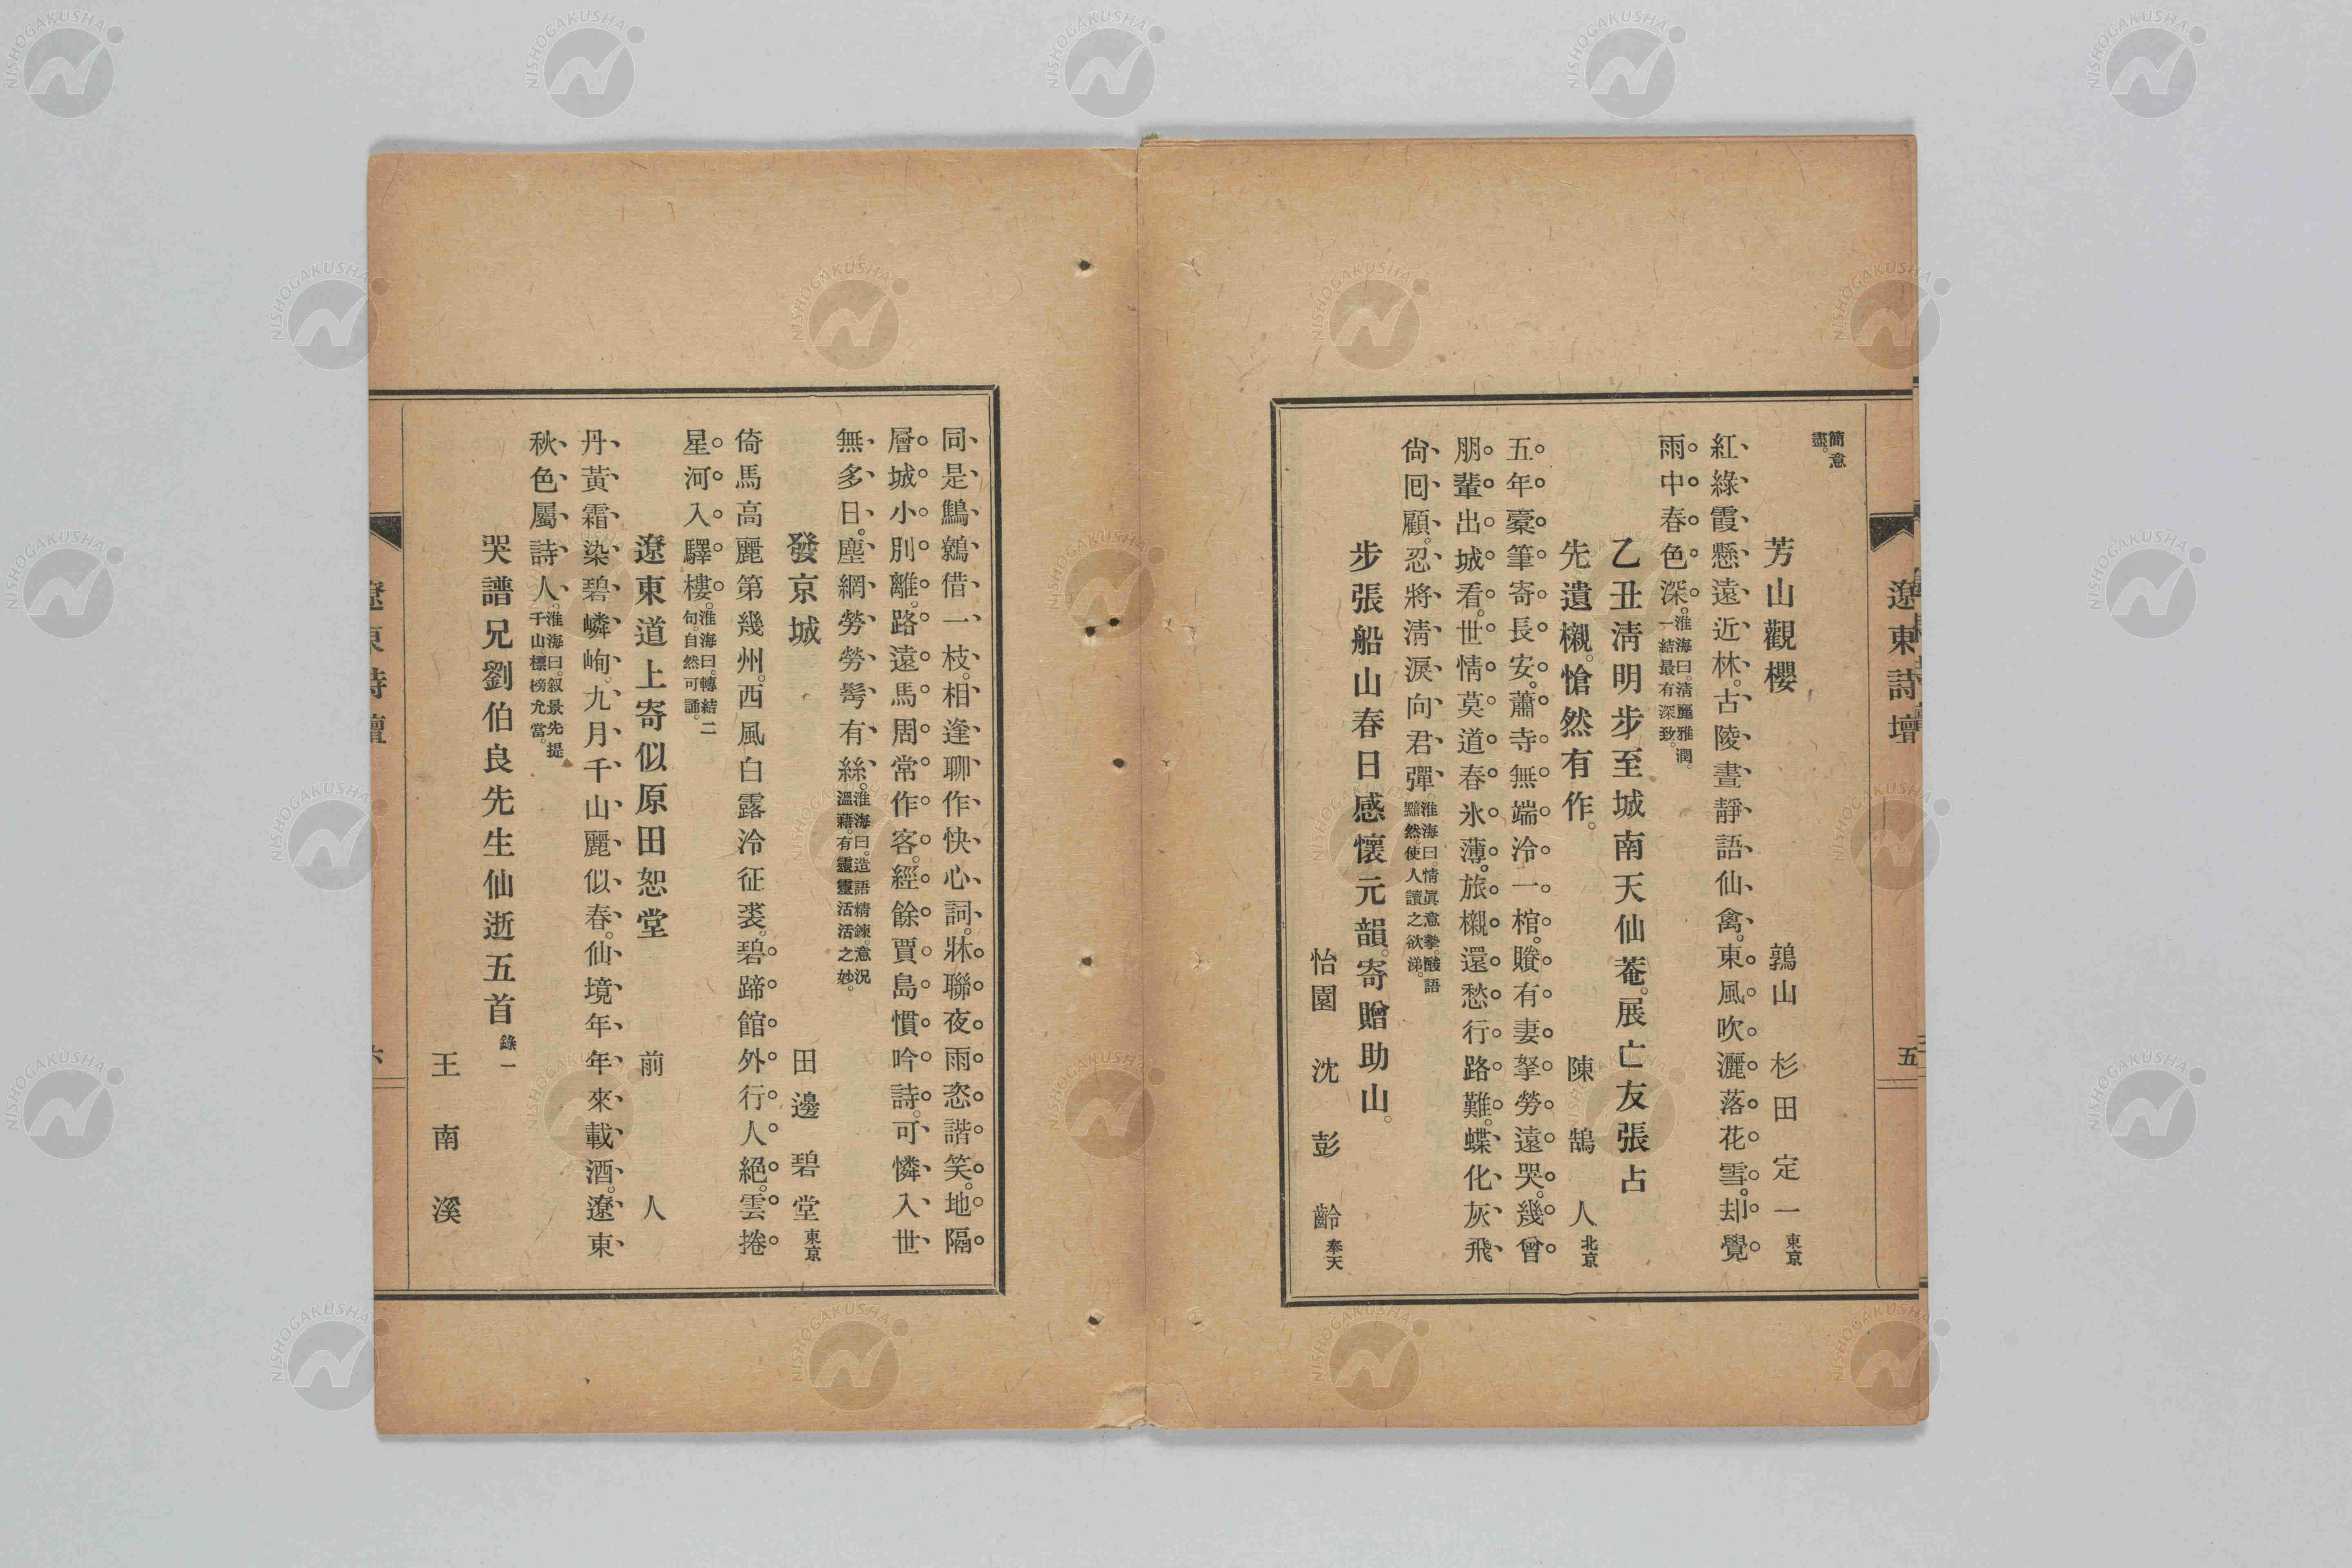 遼東詩壇
五
簡意
盡。
芳山觀櫻
鶉山 杉田定一 東京
紅綠霞懸遠近林。古陵晝靜語仙禽。東風吹灑落花雪。却覺
雨中春色深。淮海曰。淸麗雅潤。一結最有深致。
乙丑淸明步至城南天仙菴。展亡友張占
先遺櫬。愴然有作。
陳鵠人 北京
五年橐筆寄長安。蕭寺無端冷一棺。賸有妻孥勞遠哭。幾曾
朋輩出城看。世情莫道春氷薄。旅櫬還愁行路難。蝶化灰飛
尙囘顧。忍將淸淚向君彈。淮海曰。情眞意摯。酸語黯然。使人讀之欲涕。
步張船山春日感懷元韻。寄贈助山。
怡園 沈彭齡 奉天
同是鷦鷯借一枝。相逢聊作快心詞。牀聯夜雨恣諧笑。地隔
層城小別離。路遠馬周常作客。經餘賈島慣吟詩。可憐入世
無多日。塵網勞勞鬢有絲。淮海曰。造語精鍊。意況溫藉。有靈靈活活之妙。
發京城
田邊碧堂 東京
倚馬高麗第幾州。西風白露冷征裘。碧蹄館外行人絕。雲捲
星河入驛樓。淮海曰。轉結二句。自然可誦。
遼東道上寄似原田恕堂
前人
丹黃霜染碧嶙峋。九月千山麗似春。仙境年年來載酒。遼東
秋色屬詩人。淮海曰。叙景先提千山。標榜允當。
哭譜兄劉伯良先生仙逝五首 錄一
王南溪
遼東詩壇
六
NISHOGAKUSHA